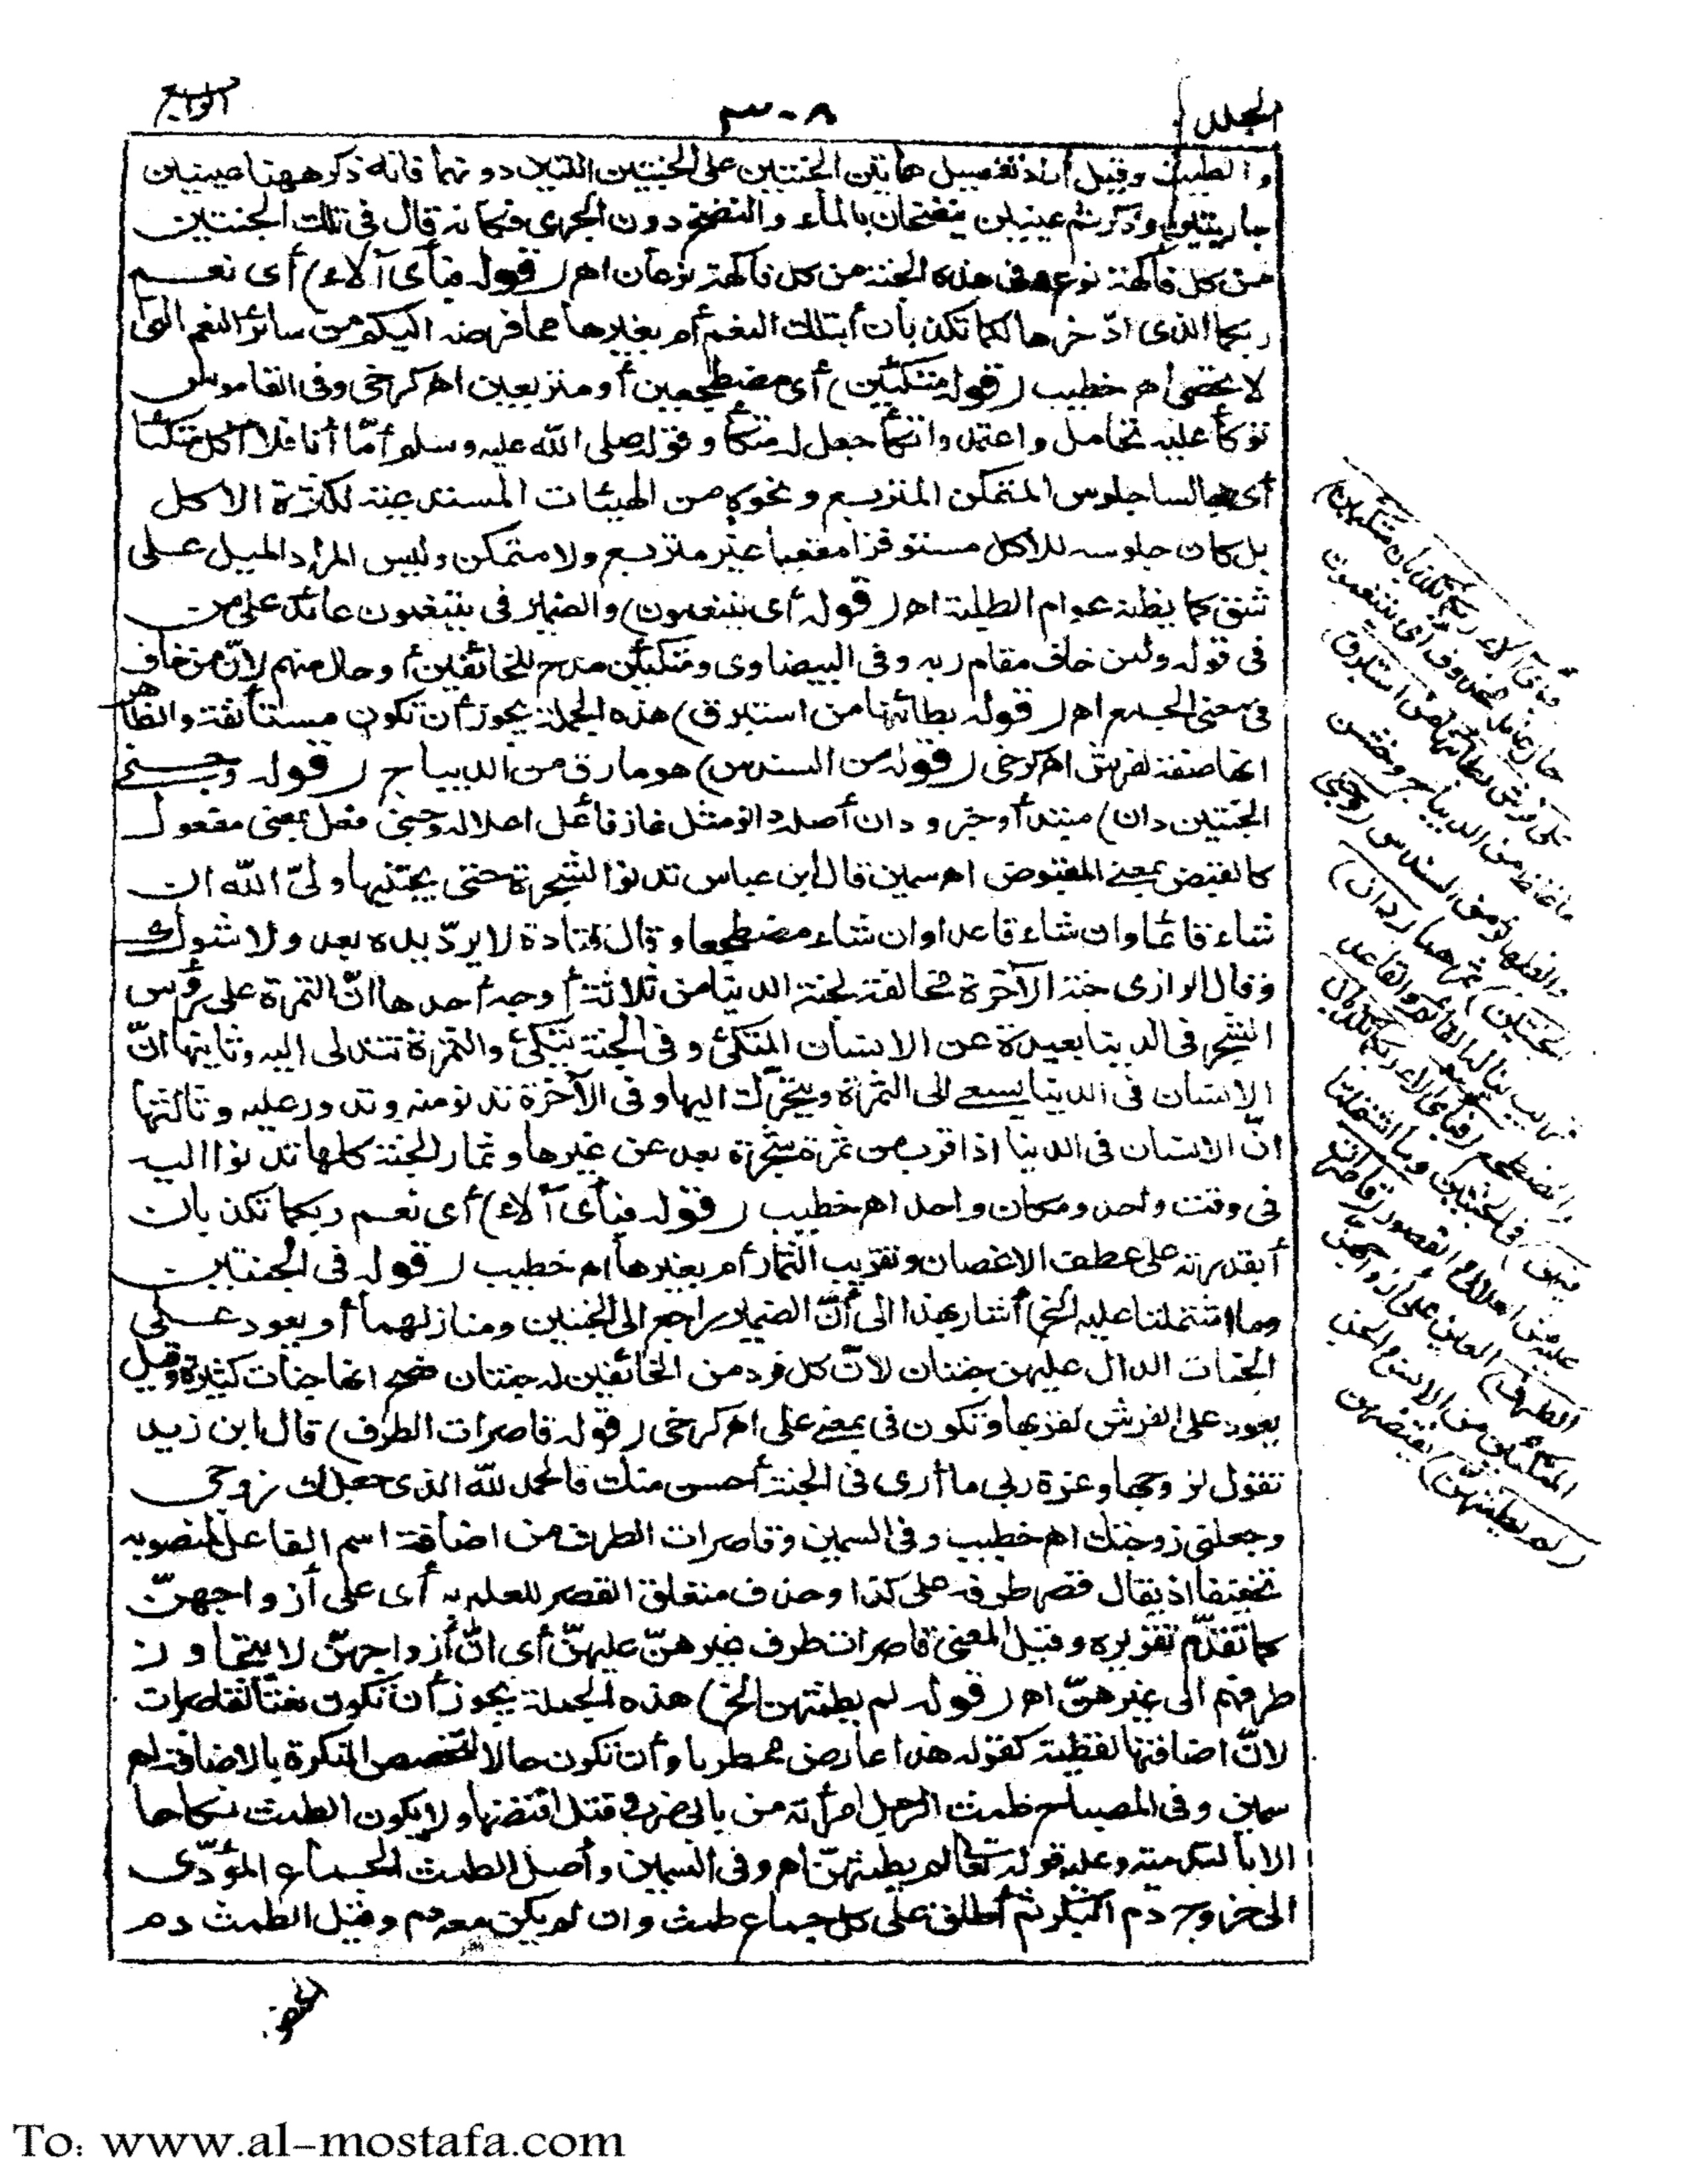 المجلد
٣٠٨
الرابع
والطيب وقيل أراد تفضيل هاتين الجنتين على الجنتين اللتين دونهما فانه ذكر ههنا عينين
جاريتين وذكر ثم عينين ينضخان بالماء والنضخ دون الجرى فكأنه قال فى تلك الجنتين
من كل فاكهة نوع وفى هذه الجنة من كل فاكهة نوعان اهـ (قوله فبأى آلاء) أى نعم
ربكما الذى ادّخرها لكما تكذبان أبتلك النعم أم بغيرها مما فرضه اليكم من سائر النعم التى
لا تحصى اهـ خطيب (قوله متكئين) أى مضطجعين أو متربعين اهـ كرخى وفى القاموس
توكأ عليه تحامل واعتمد واتكأ جعل له متكأ وقوله صلى الله عليه وسلم أمّا أنا فلا آكل متكئا
أى جالسا جلوس المتمكن المتربع ونحوه من الهيئات المستدعية لكثرة الاكل
بل كان جلوسه للاكل مستوفزا مقعيا غير متربع ولا متمكن وليس المراد الميل على
شق كما يظنه عوام الطلبة اهـ (قوله أى يتنعمون) والضمير فى يتنعمون عائد على من
فى قوله ولمن خاف مقام ربه وفى البيضاوى ومتكئين مدح للخائفين أو حال منهم لانّ من خاف
فى معنى الجمع اهـ (قوله بطائنها من استبرق) هذه الجملة يجوز أن تكون مستأنفة والظاهر
انها صفة لفرش اهـ كرخى (قوله من السندس) هو مارق من الديباج (قوله وجنى
الجنتين دان) مبتدأ وخبر ودان أصله دانو مثل غاز فاعل اعلاله وجنى فعل بمعنى مفعول
كالقبض بمعنى المقبوض اهـ سمين قال ابن عباس تدنو الشجرة حتى يجتنيها ولىّ الله ان
شاء قائما وان شاء قاعدا وان شاء مضطجعا وقال قتادة لا يردّ يده بعد ولا شوك
وقال الرازى جنة الآخرة مخالفة لجنة الدنيا من ثلاثة أوجه أحدها انّ الثمرة على رؤس
الشجر فى الدنيا بعيدة عن الانسان المتكئ وفى الجنة يتكئ والثمرة تتدلى اليه وثانيها انّ
الانسان فى الدنيا يسعى الى الثمرة ويتحرّك اليها وفى الآخرة تدنو منه وتدور عليه وثالثها
انّ الانسان فى الدنيا اذا قرب من ثمرة شجرة بعد عن غيرها وثمار الجنة كلها تدنو اليه
فى وقت واحد ومكان واحد اهـ خطيب (قوله فبأى آلاء) أى نعم ربكما تكذبان
أبقدرته على عطف الاغصان وتقريب الثمار أم بغيرها اهـ خطيب (قوله فى الجنتين
وما اشتملتا عليه الخ) أشار بهذا الى أنّ الضمير راجع الى الجنتين ومنازلهما أو يعود على
الجنات الدال عليهن جنتان لانّ كل فرد من الخائفين له جنتان فصح انها جنات كثيرة وقيل
يعود على الفرش لقربها وتكون فى بمعنى على اهـ كرخى (قوله قاصرات الطرف) قال ابن زيد
تقول لزوجها وعزة ربى ما أرى فى الجنة أحسن منك فالحمد لله الذى جعلك زوجى
وجعلنى زوجتك اهـ خطيب وفى السمين وقاصرات الطرف من اضافة اسم الفاعل لمنصوبه
تخفيفا اذ يقال قصر طرفه على كذا وحذف متعلق القصر للعلم به أى على أزواجهنّ
كما تقدّم تقريره وقيل المعنى قاصرات طرف غيرهنّ عليهنّ أى انّ أزواجهنّ لا يتجاوز
طرفهم الى غيرهنّ اهـ (قوله لم يطمثهن الخ) هذه الجملة يجوز أن تكون نعتا لقاصرات
لانّ اضافتها لفظية كقوله هذا عارض ممطرنا وأن تكون حالا لتخصص النكرة بالاضافة اهـ
سمين وفى المصباح طمث الرجل امرأته من بابى ضرب وقتل افتضها ولا يكون الطمث نكاحا
الا بالتدمية وعليه قوله تعالى لم يطمثهنّ اهـ وفى السمين وأصل الطمث الجماع المؤدّى
الى خروج دم البكر ثم أطلق على كل جماع طمث وان لم يكن معه دم وقيل الطمث دم
فبأى آلاء ربكما تكذبان متكئين)
حال عامله محذوف أى يتنعمون
(على فرش بطائنها من استبرق)
ما غلظ من الديباج وخشن
والظهائر من السندس (وجنى
الجنتين) ثمرهما (دان)
قريب يناله القائم والقاعد
والمضطجع (فبأى آلاء ربكما تكذبان
فيهن) فى الجنتين وما اشتملتا
عليه من العلالى والقصور (قاصرات
الطرف) العين على أزواجهن
المتكئين من الانس والجن
(لم يطمثهن) يفتضهن
To: www.al-mostafa.com